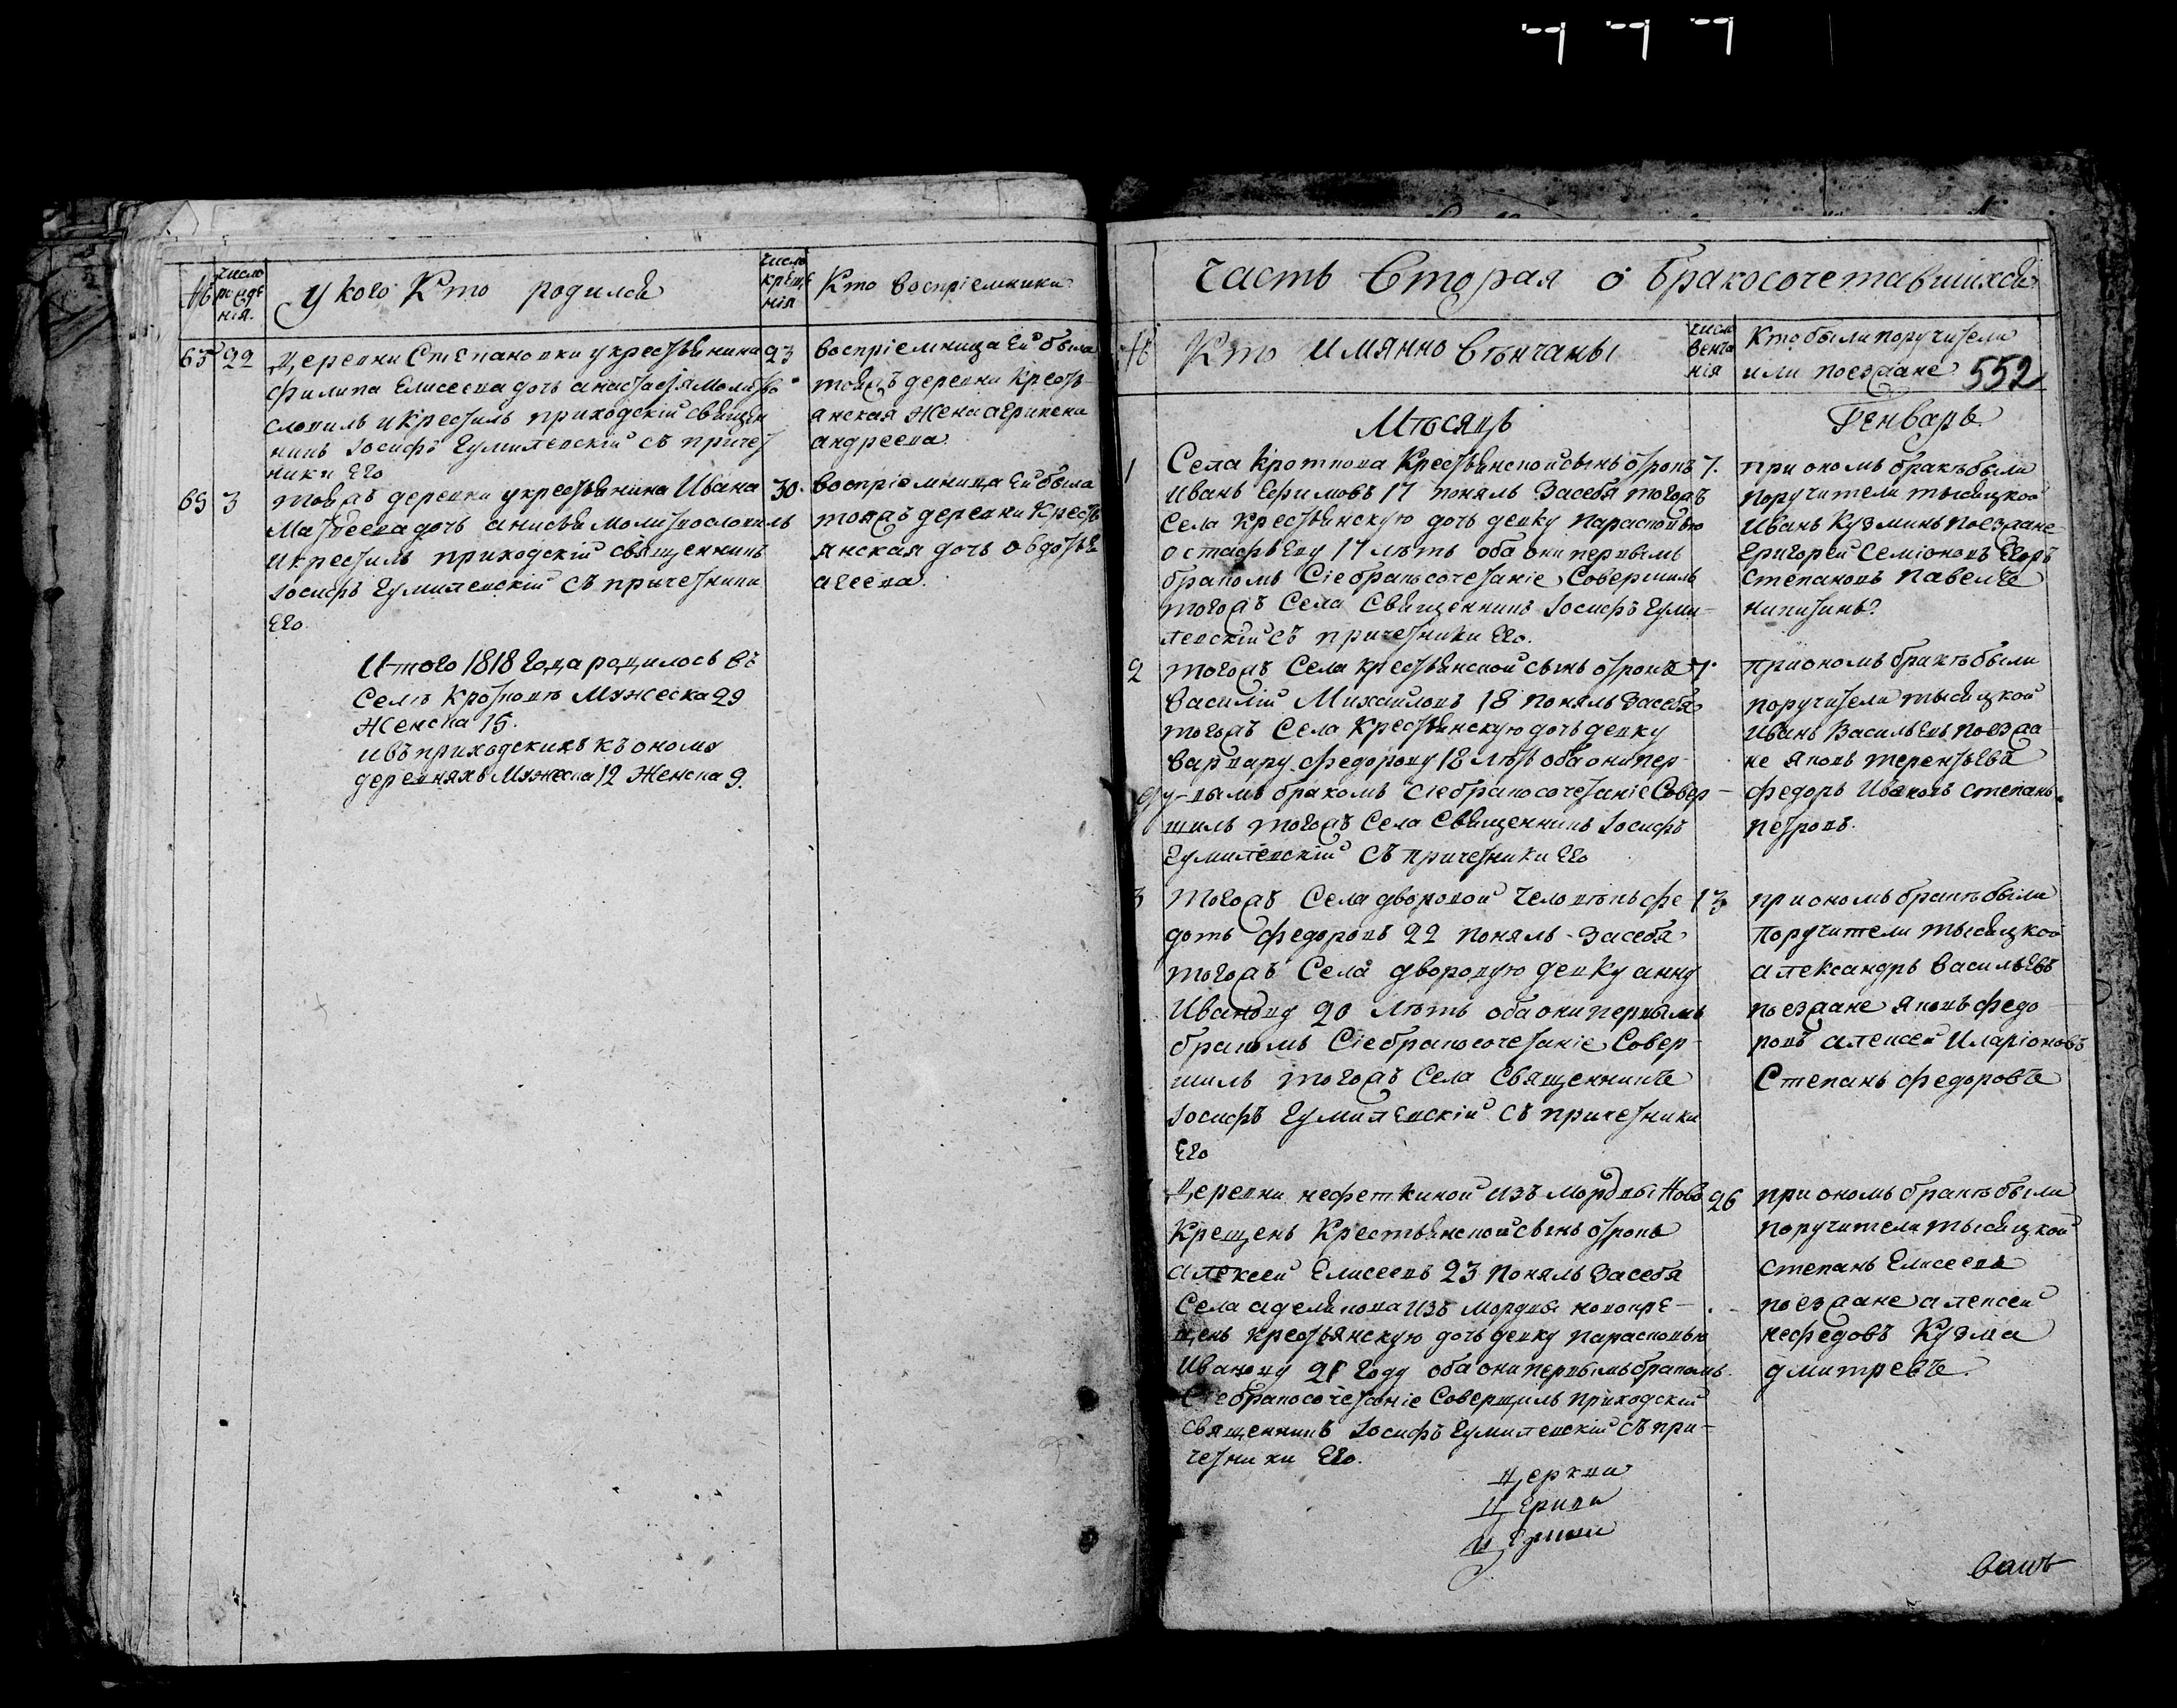 №
число рожде нія.
У кого Кто родился
число креще нія
Кто воспріемники
65 22 Деревни Степановки у крестьянина 23
Филипа Елисеева дочь анастасія молитво
словилъ и крестилъ приходскій священ
никъ Іосифъ Гумилевскій съ причет
ники Его
воспріемница Ей была
тояжъ деревни Кресть
янская жена агрипена
андреева.
69 3 тояжъ деревни у крестьянина Ивана 30.
Матвеева дочь анисья молитвословилъ
и крестилъ приходскій священникъ
Іосифъ Гумилевскій съ причетники
Его
воспріемница Ей была
тояжъ деревни Кресть
янская дочь овдотья
агеева.
Итого 1818 года родилось въ
Селѣ Кротковѣ Мужеска 29
Женска 15.
и въ приходскихъ къ оному
деревняхъ Мужеска 12 Женска 9.
Часть Вторая о бракосочетавшихся
№
Кто имянно вѣнчаны
число венча нія
Кто были поручители
или поезжане 552
Мѣсяцъ Генварь
1 Села Кроткова Крестьянской сынъ отрокъ 7.
Иванъ Ефимовъ 17 понялъ засебя тогожъ
Села Крестьянскую дочь девку парасковью
остафьеву 17 лѣтъ оба они первымъ
бракомъ Сіе бракосочетаніе Совершилъ
тогожъ Села Священникъ Іосифъ Гуми-
левскій съ причетники Его.
при ономъ бракѣ были
поручители тысяцкой
Иванъ Кузминъ поезжане
Григорей Семіоновъ Егоръ
Степановъ Павелъ
никитинъ
2 тогожъ Села крестьянской сынъ отрокъ 7.
Василій Михайловъ 18 понялъ засебя
тогожъ Села Крестьянскую дочь девку
варвару федорову 18 лѣтъ оба они пер-
вымъ бракомъ сіе бракосочетаніе Совер-
шилъ тогожъ Села Священникъ Іосифъ
Гумилевскій съ причетники Его
при ономъ бракѣ были
поручители тысяцкой
Иванъ Васильевъ поезжа
не яковъ терентьевъ
федоръ Ивановъ степанъ
петровъ.
3 тогожъ Села дворовой человѣкъ фе 13
дотъ федоровъ 22 понялъ засебя
тогожъ Села дворовую девку анну
Иванову 20 лѣтъ оба они первымъ
бракомъ Сіе бракосочетаніе Совер-
шилъ тогожъ Села Священникъ
Іосифъ Гумилевскій съ причетники
Его
при ономъ бракѣ были
поручители тысяцкой
александръ васильевъ
поезжане яковъ федо
ровъ алексей Иларіоновъ
Степанъ федоровъ
Деревни нефеткиной изъ мордвы Ново 26
Крещенъ Крестьянской сынъ отрокъ
алексей Елисеевъ 23 понялъ засебя
Села аделякова изъ мордвы новокре-
щенъ крестьянскую дочь девку парасковью
Иванову 21 году оба они первымъ бракомъ.
Сіе бракосочетаніе Совершилъ приходскій
Священникъ Іосифъ Гумилевскій съ при-
четники Его.
при ономъ бракѣ были
поручители тысяцкой
степанъ Елисеевъ
поезжане алексей
нефедовъ Кузма
дмитревъ.
Церкви